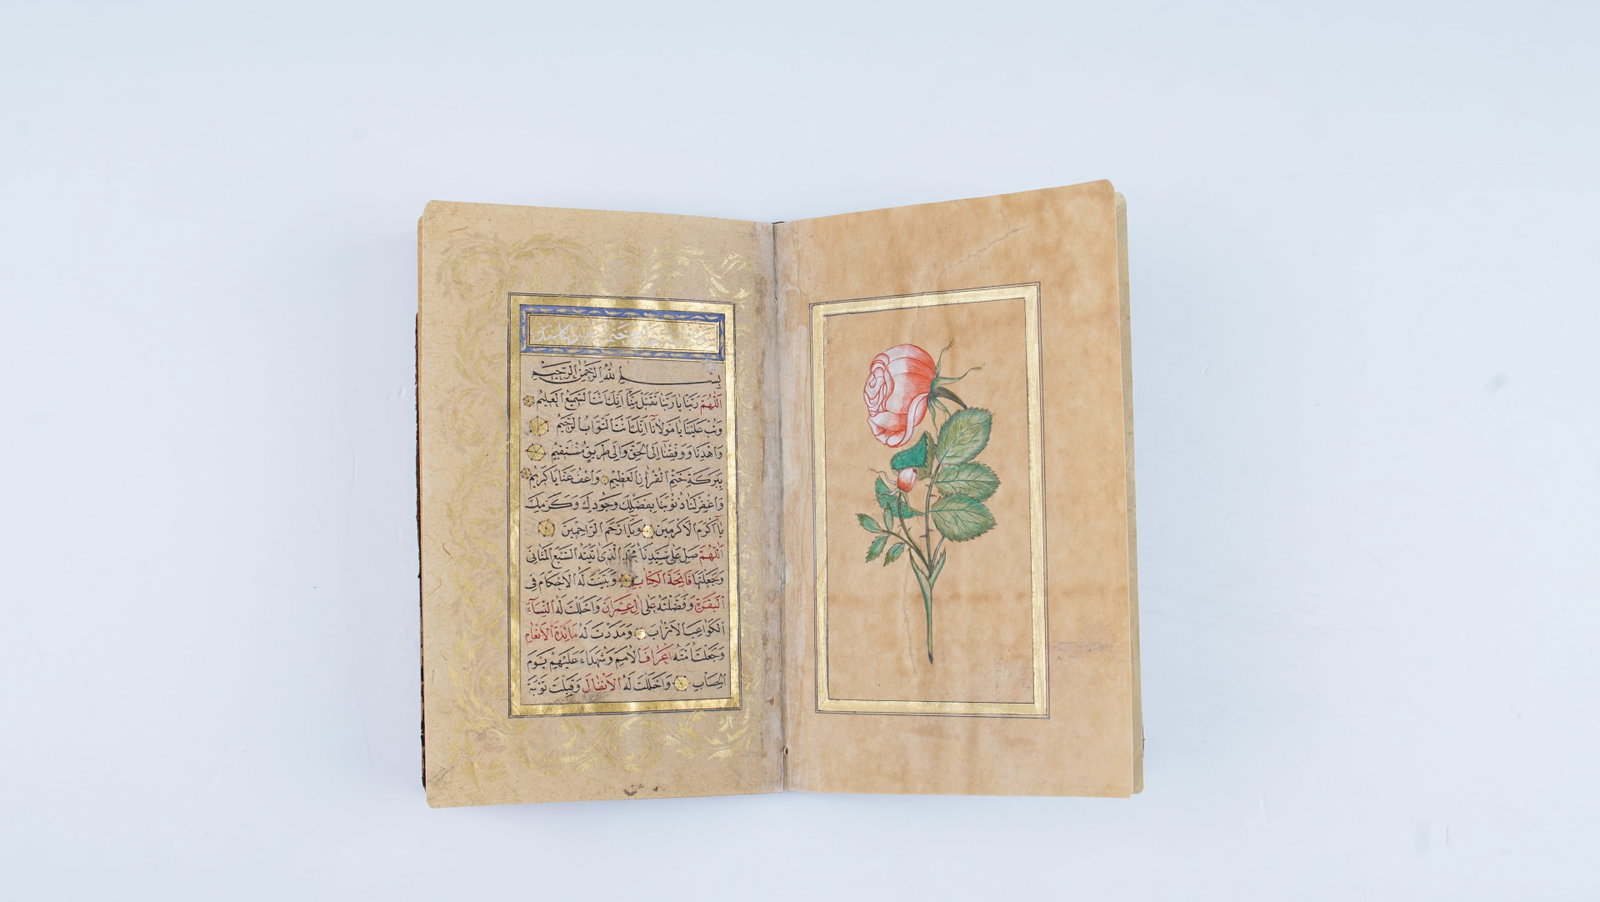 بسم الله الرحمن الرحيم
اللهم ربنا يا ربنا تقبل منا انك انت السميع العليم
وتب علينا يا مولانا انك انت التواب الرحيم
واهدنا ووفقنا الى الحق والى طريق مستقيم
ببركة ختم القرآن العظيم واعف عنا يا كريم
واغفر لنا ذنوبنا بفضلك وجودك وكرمك
يا اكرم الاكرمين ويا ارحم الراحمين
اللهم صل على سيدنا محمد الذى اتيته السبع المثانى
وجعلتها فاتحة الكتاب وبينت له الاحكام فى
البقرة وفضلته على ال عمران واحللت له النساء
الكواعب الاتراب ومددت له مائدة الانعام
وجعلت امته اعراف الامم وشهداء عليهم يوم
الحساب واحللت له الانفال وقبلت توبة